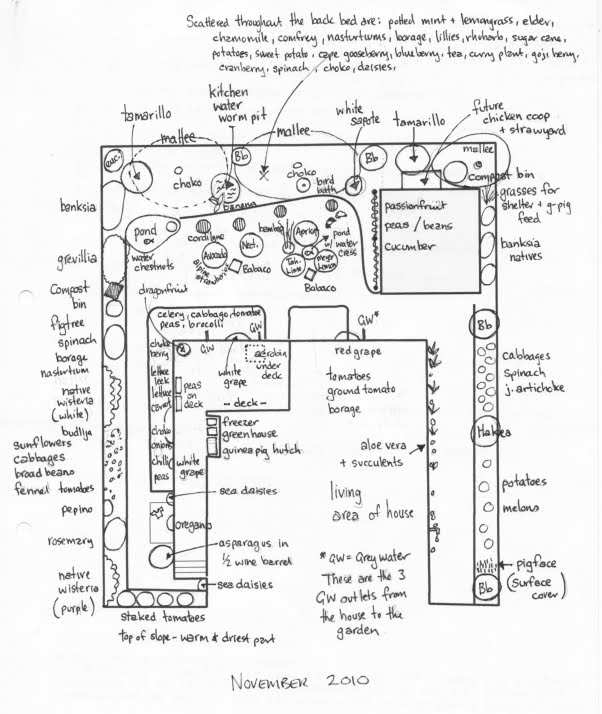 Scattered throughout the back bed are: potted mint + lemongrass, elder,
chamomile, comfrey, nasturtiums, borage, lillies, rhubarb, sugar cane,
potatoes, sweet potato, cape gooseberry, blueberry, tea, curry plant, goji berry,
cranberry, spinach, choko, daisies.
kitchen
water
worm pit
tamarillo
mallee
mallee
white
sapote
tamarillo
future
chicken coop
+ strawyard
euc.
Bb
Bb
mallee
choko
choko
bird
bath
banana
compost bin
grasses for
shelter + g-pig
feed
banksia
pond
water
chestnuts
cordiline
Avocado
alpine
strawberry
Nect.
Babaco
bamboo
Apricot
Tah.
Lime
Meyer
Lemon
pond
w/ water
cress
Babaco
passionfruit
peas / beans
cucumber
banksia
natives
grevillia
compost
bin
dragonfruit
figtree
spinach
borage
nasturtium
native
wisteria
(white)
budlja
sunflowers
cabbages
broad beans
fennel tomatoes
pepino
rosemary
native
wisteria
(purple)
celery, cabbage, tomatoe
peas, brocoli
GW
GW
GW*
choke
berry
lettuce
leek
lettuce
carrot
choko
onions
chilli
peas
peas
on
deck
white
grape
aerobin
under
deck
- deck -
white
grape
freezer
greenhouse
guinea pig hutch
red grape
tomatoes
ground tomato
borage
aloe vera
+ succulents
living
area of house
sea daisies
oregano
asparagus in
1/2 wine barrel
sea daisies
* GW = Grey water
These are the 3
GW outlets from
the house to the
garden
Bb
cabbages
spinach
j. artichoke
Hakea
potatoes
melons
pigface
(surface
cover)
Bb
staked tomatoes
top of slope - warm & driest part
NOVEMBER 2010